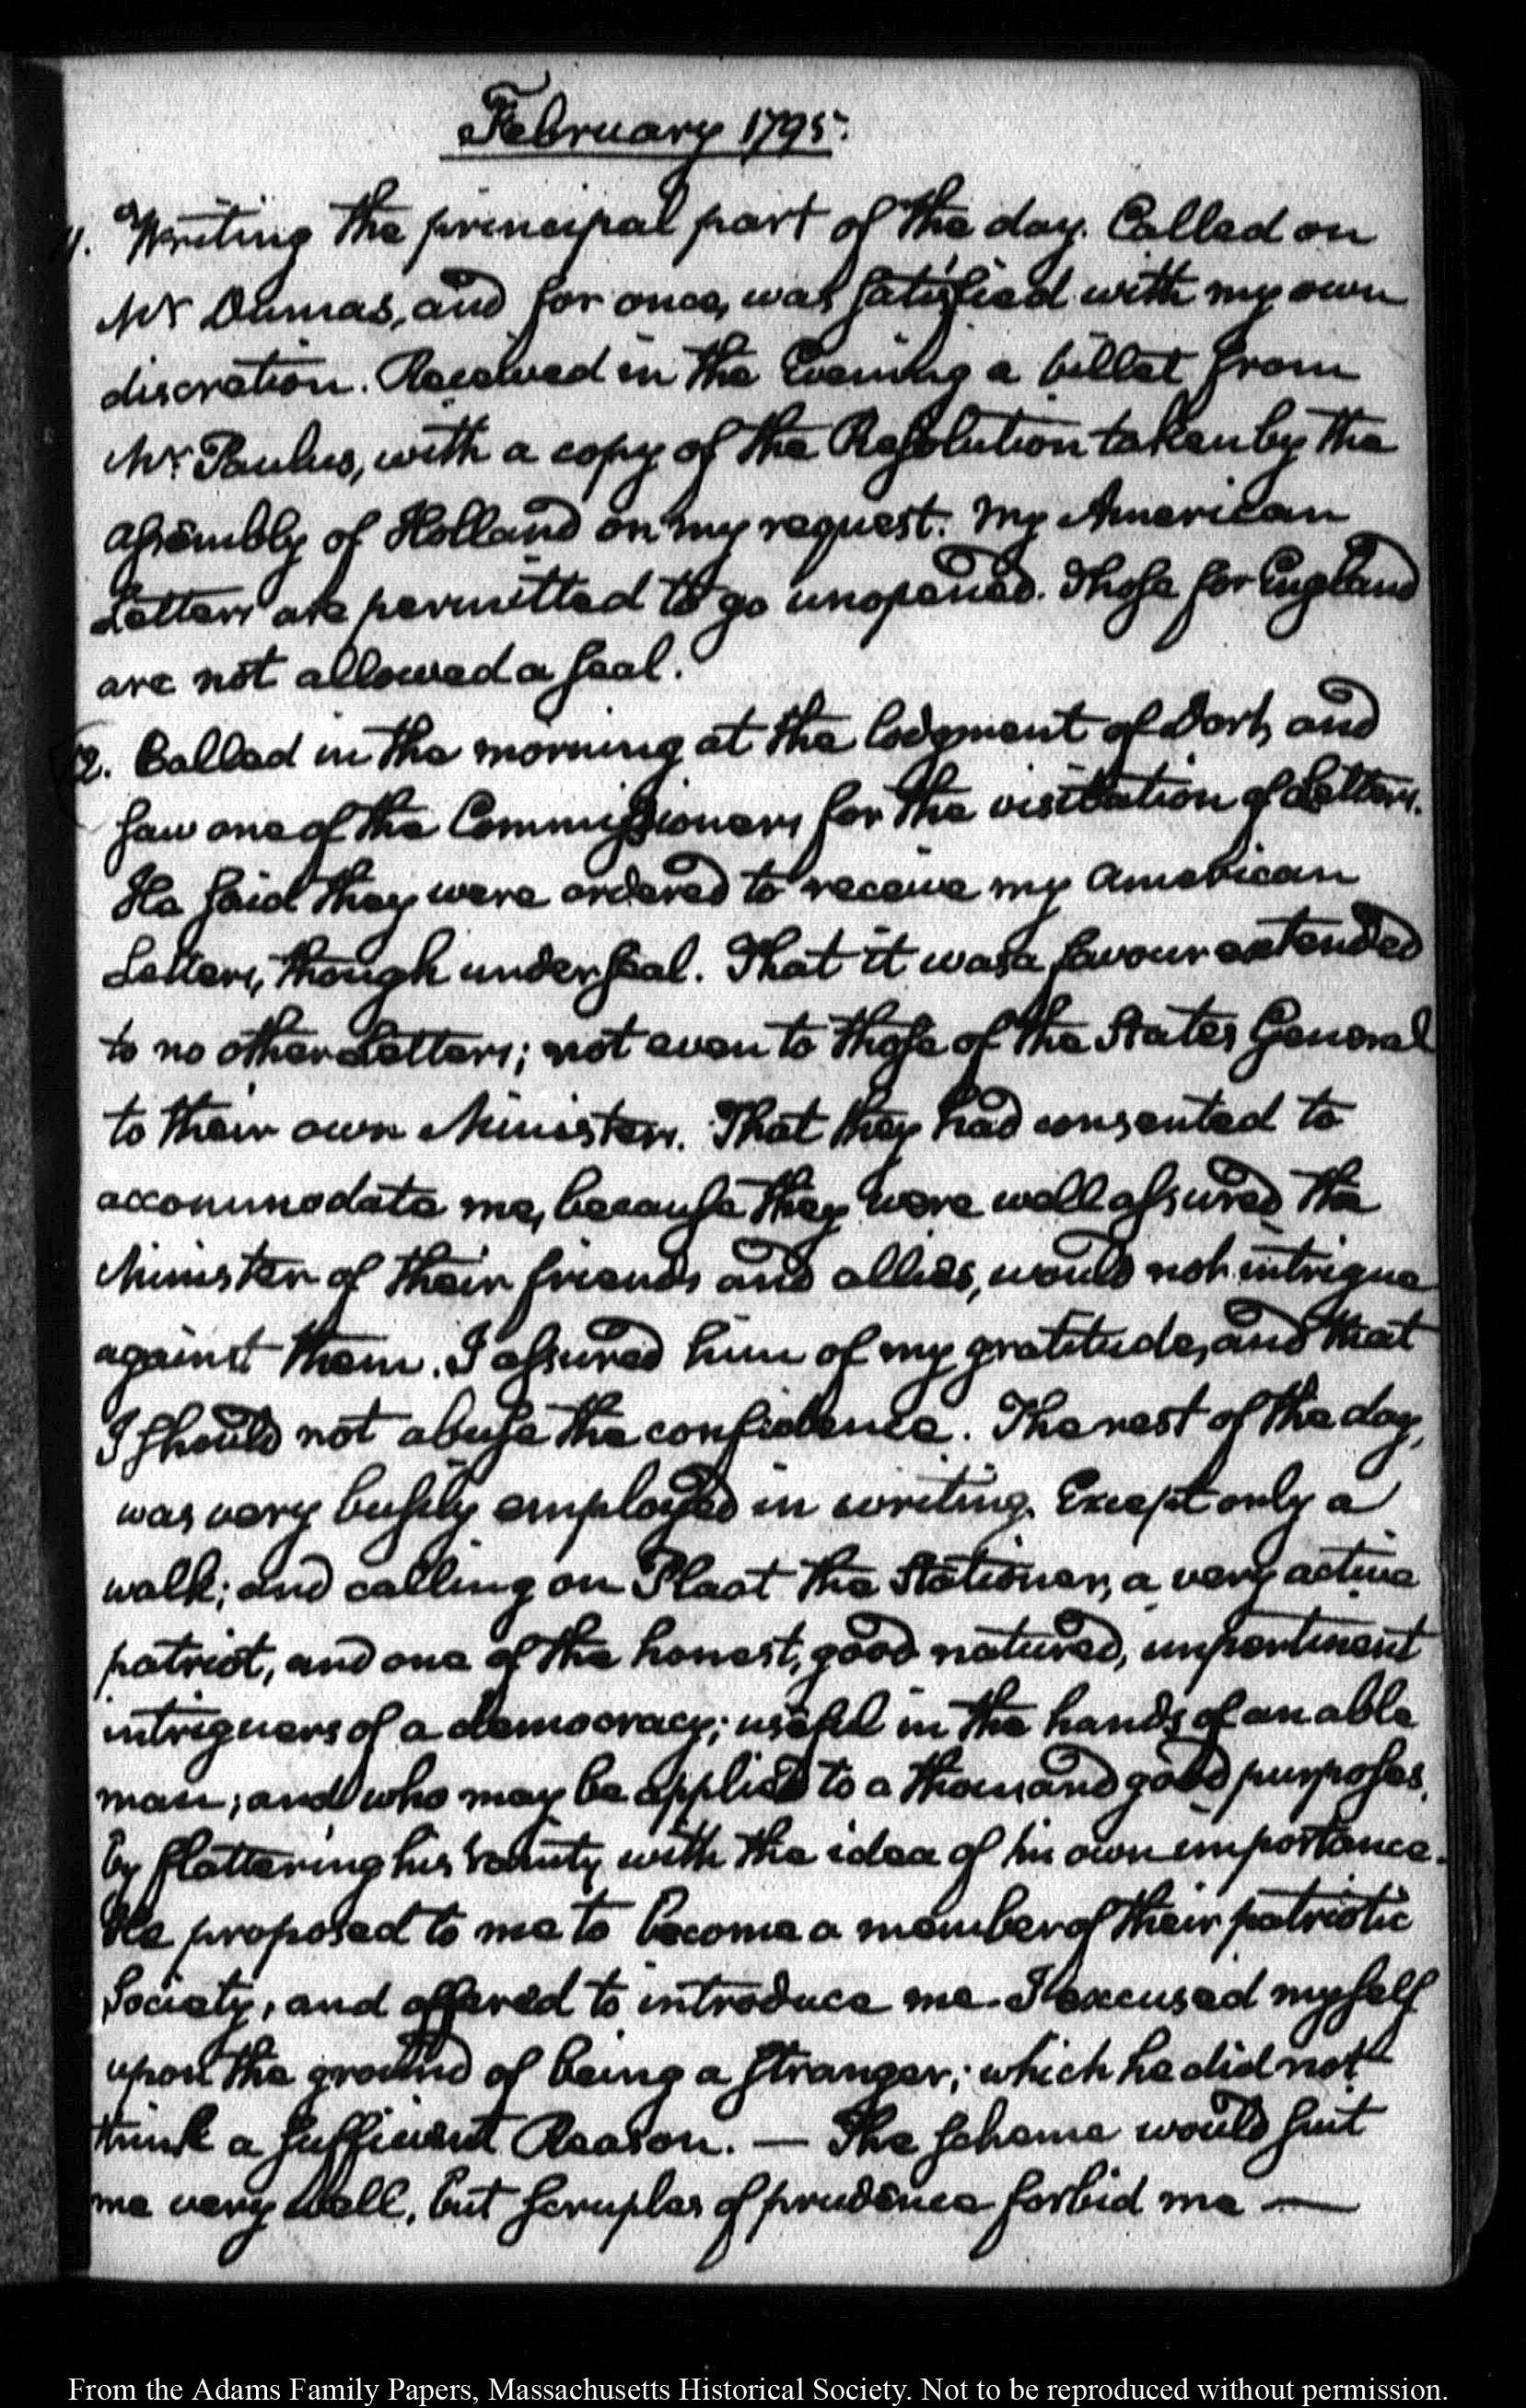 February 1795.
11. Writing the principal part of the day. Called on
Mr Dumas, and for once, was satisfied with my own
discretion. Received in the Evening a billet from
Mr. Paulus, with a copy of the Resolution taken by the
assembly of Holland on my request. My American
Letters are permitted to go unopened. Those for England
are not allowed a seal.
12. Called in the morning at the lodgment of Dort, and
saw one of the Commissioners for the visitation of Letters.
He said they were ordered to receive my American
Letters, though under seal. That it was a favour extended
to no other Letters; not even to those of the States General
to their own Ministers. That they had consented to
accommodate me, because they were well assured the
Minister of their friends and allies, would not intrigue
against them. I assured him of my gratitude, and that
I should not abuse the confidence. The rest of the day,
was very busily employed in writing. Except only a
walk; and calling on Plaat the Stationer, a very active
patriot, and one of the honest, good natured, impertinent
intriguers of a democracy; useful in the hands of an able
man; and who may be applied to a thousand good purposes,
by flattering his vanity with the idea of his own importance.
He proposed to me to become a member of their patriotic
Society, and offered to introduce me. I excused myself
upon the ground of being a stranger; which he did not
think a sufficient Reason. — The scheme would suit
me very well, but scruples of prudence forbid me —
From the Adams Family Papers, Massachusetts Historical Society. Not to be reproduced without permission.